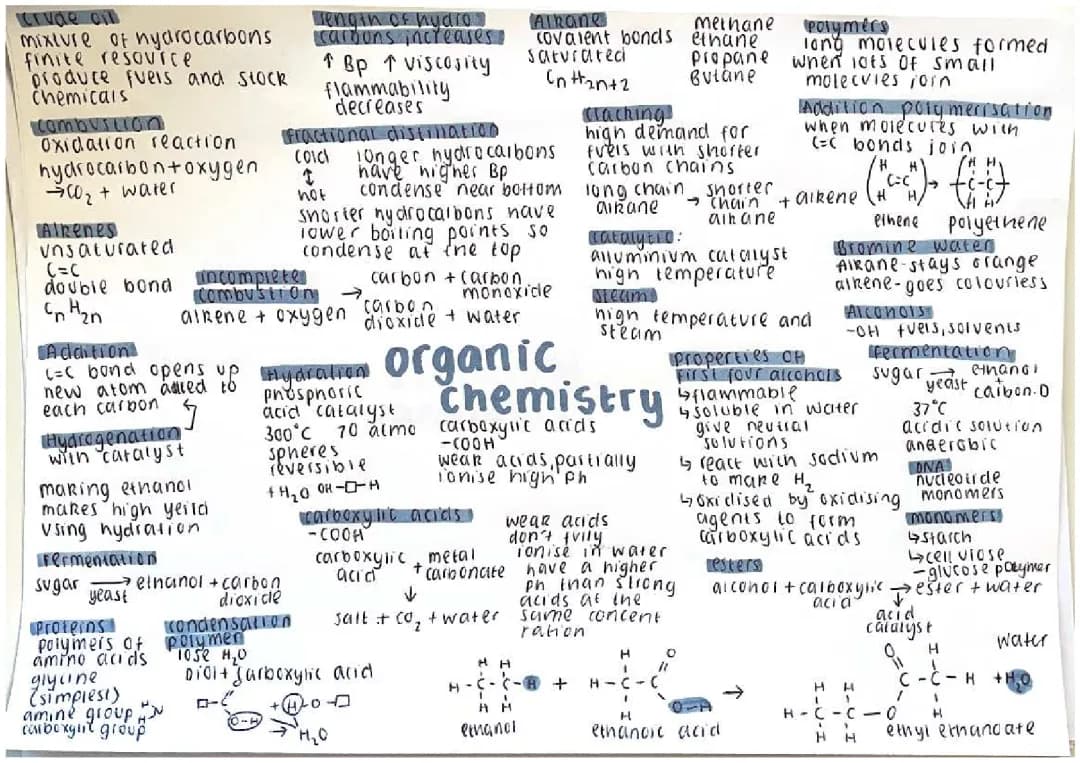 crude oil
mixture of hydrocarbons
finite resource
produce fuels and stock
chemicals
combustion
oxidation reaction
hydrocarbon + oxygen
→ CO2 + water
Alkenes
unsaturated
C=C
double bond
CnH2n
length of hydro
carbons increases
↑ Bp ↑ viscosity
flammability
decreases
fractional distillation
cold
↕
hot
longer hydrocarbons
have higher Bp
condense near bottom
shorter hydrocarbons have
lower boiling points so
condense at the top
incomplete
combustion
alkene + oxygen
→ carbon + carbon
monoxide
carbon
dioxide + water
Alkane
covalent bonds
saturated
CnH2n+2
methane
ethane
propane
Butane
cracking
high demand for
fuels with shorter
carbon chains
long chain
alkane
→ shorter
chain
alkane
+ alkene
catalytic:
alluminium catalyst
high temperature
steam
high temperature and
steam
polymers
long molecules formed
when lots of small
molecules join
Addition polymerisation
when molecules with
C=C bonds join
H H
C=C
H H
→
H H
-C-C-
H H
ethene polyethene
Bromine water
Alkane-stays orange
alkene-goes colourless
Alcohols
-OH fuels, solvents
organic
chemistry
Addition
C=C bond opens up
new atom added to
each carbon
Hydrogenation
with catalyst
making ethanol
makes high yeild
using hydration
Fermentation
sugar → ethanol + carbon
yeast dioxide
Hydration
phosphoric
acid catalyst
300°C 70 atmo
spheres
reversible
+ H2O OH-□-H
carboxylic acids
-COOH
weak acids, partially
ionise high ph
carboxylic acids
-COOH
carboxylic + metal
acid carbonate
↓
salt + CO2 + water
weak acids
don't fully
ionise in water
have a higher
ph than strong
acids at the
same concent
ration
properties of
first four alcohols
↳ flammable
↳ soluble in water
give neutral
solutions
↳ react with sodium
to make H2
↳ oxidised by oxidising
agents to form
carboxylic acids
fermentation
sugar → ethanol
yeast +
carbon.D
37°C
acidic solution
anaerobic
DNA
nucleotide
monomers
monomers
↳ starch
↳ cellulose
- glucose polymer
esters
alcohol + carboxylic → ester + water
acid
↓
acid
catalyst
proteins
polymers of
amino acids
glycine
(simplest)
amine group H
H N
carboxylic group
condensation
polymer
lose H2O
Diol + carboxylic acid
□-C
O-H
+ H-O-□
→ H2O
H H
H-C-C-H
H H
ethanol
+
H
H-C-C
H
O
O-H
ethanoic acid
→
H H
H-C-C-O
H H
O
H
C-C-H
H
ethyl ethanoate
water
+ H2O